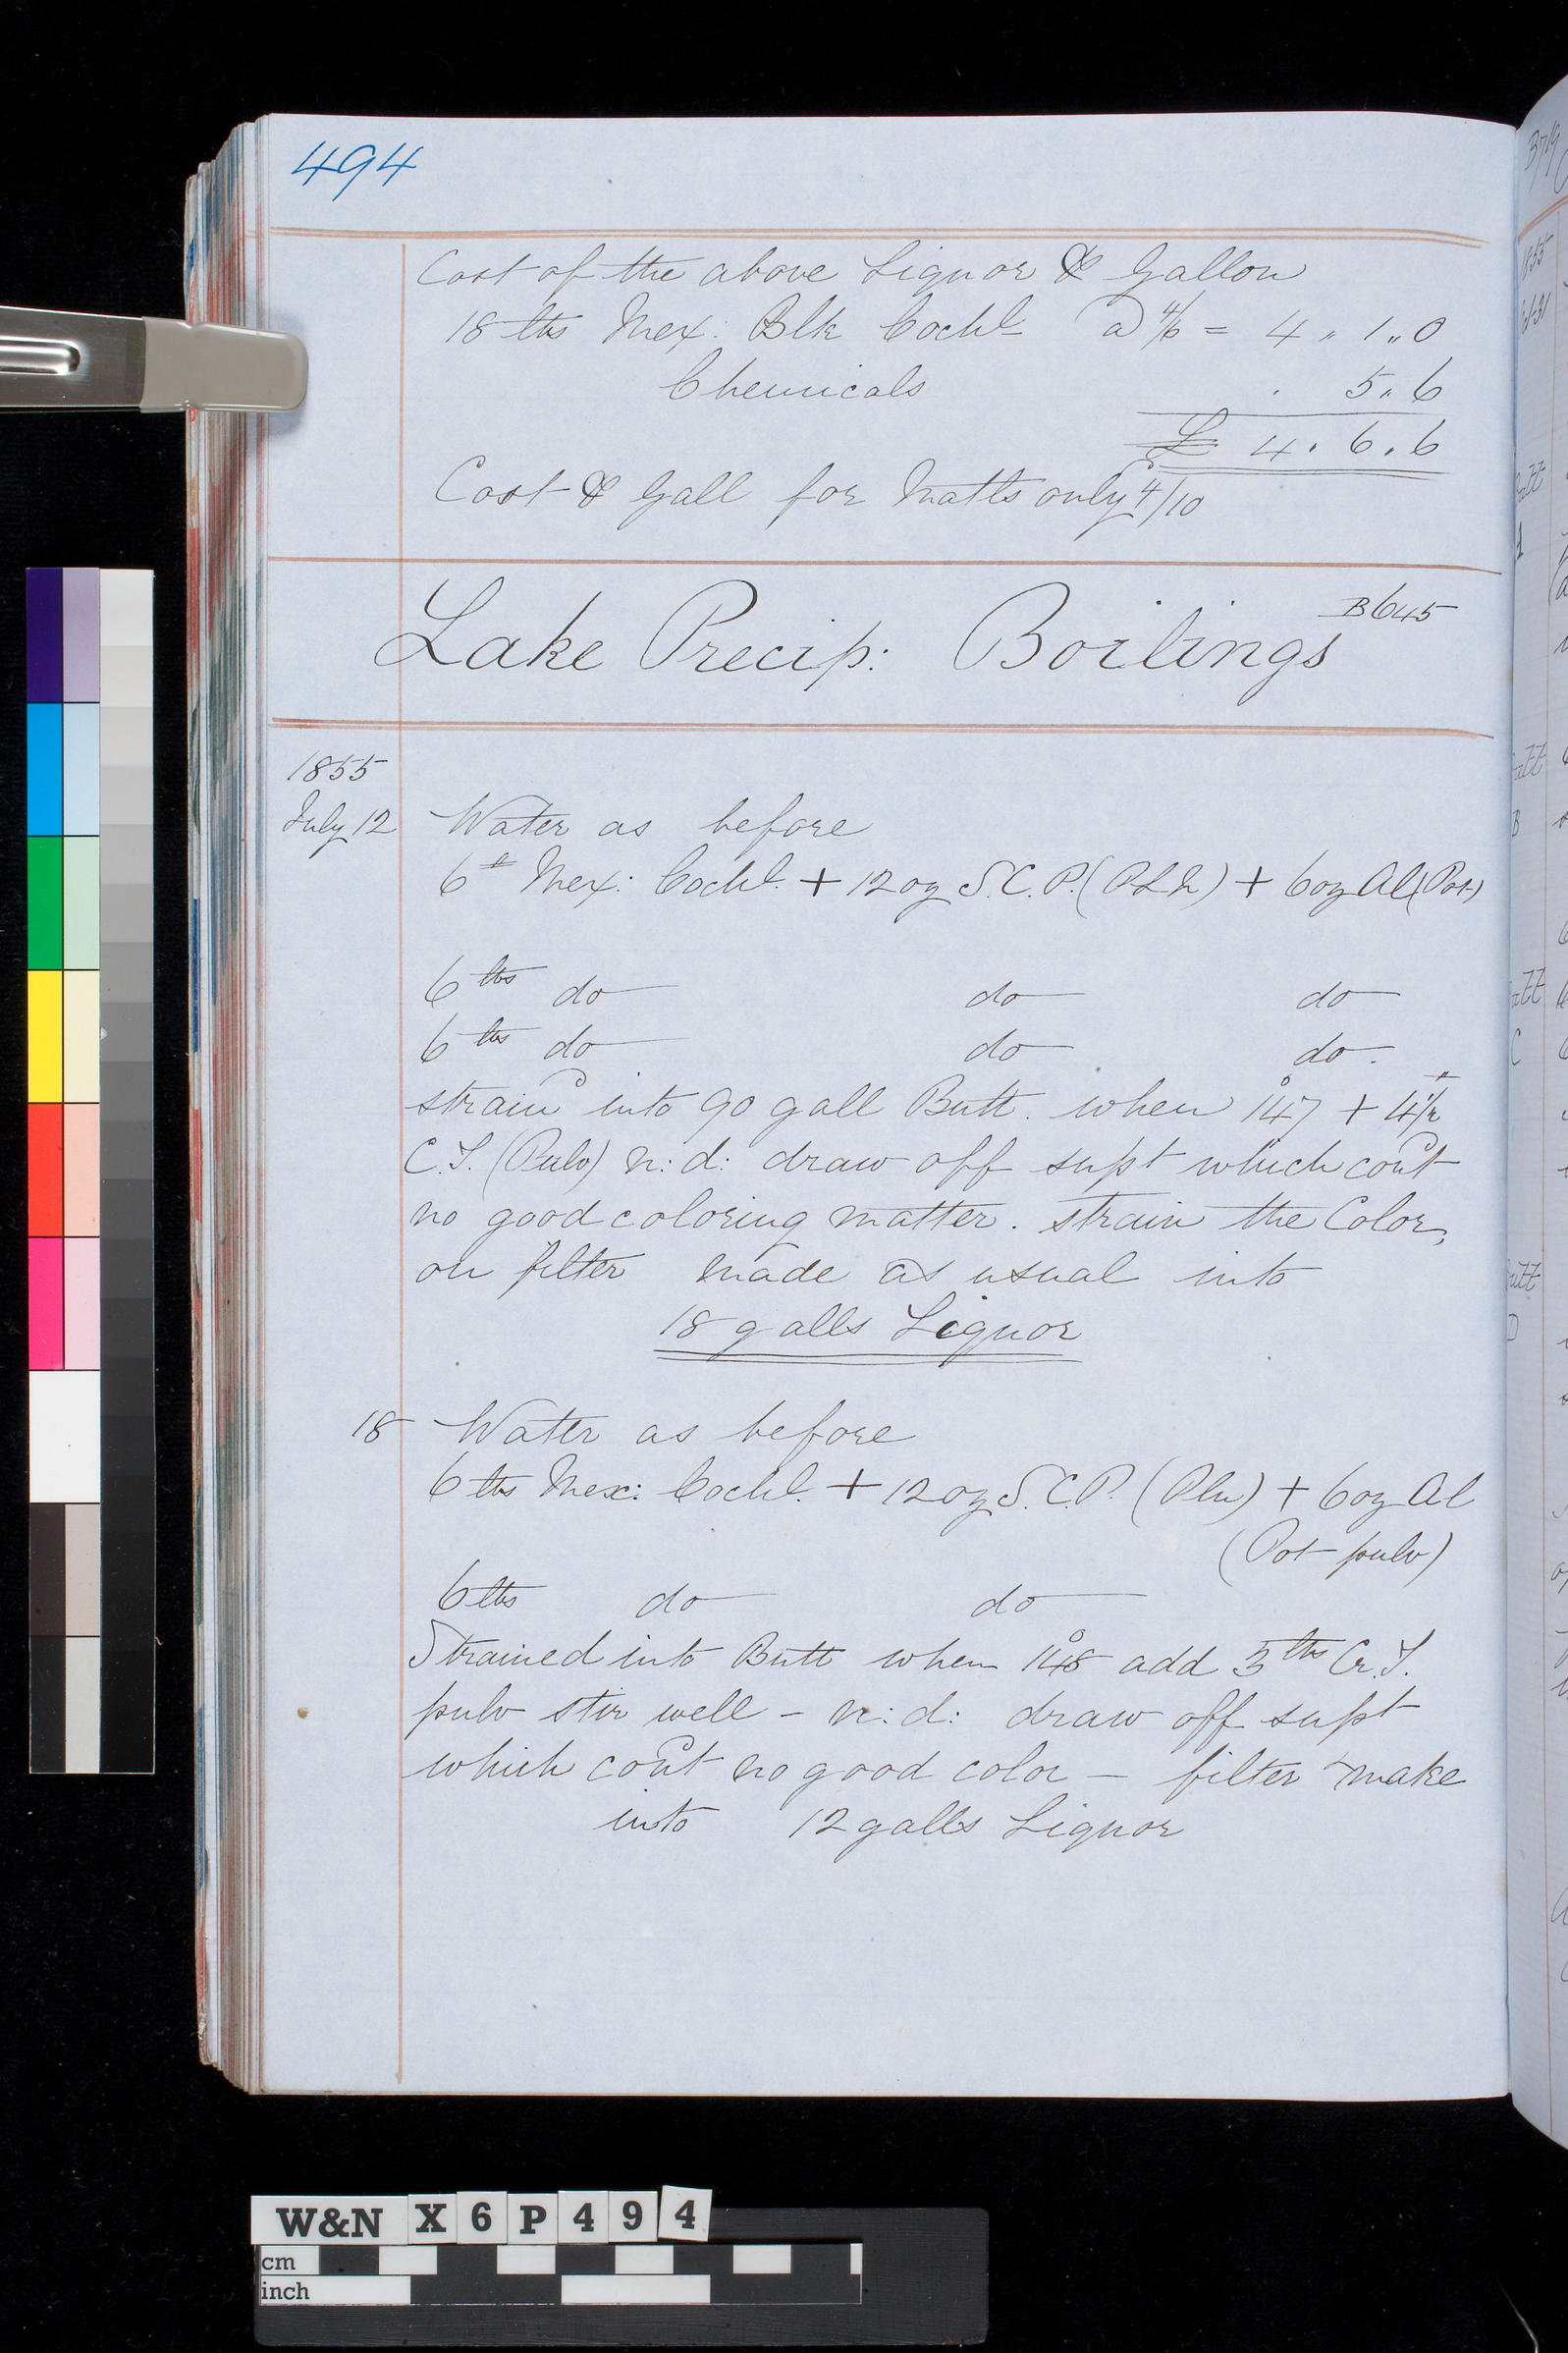 494
Cost of the above Liquor ⅌ Gallon
18 lbs Mex: Blk Cochl a 4/6 = 4 " 1 " 0
Chemicals . 5 " 6
£ 4 . 6 . 6
Cost ⅌ Gall for Matls only 4/10
Lake Precip: Boilings B645
1855
July 12 Water as before
6 # Mex: Cochl. + 12 oz S.C.P. ( ) + 6 oz Al (Pot)
6 lbs do do do
6 lbs do do do.
strain into 90 gall Butt. when 147° + 4½ #
C.T. (Pulv) n:d: draw off supt which cont
no good coloring matter. strain the Color,
on filter made as usual into
18 galls Liquor
18 Water as before
6 lbs Mex: Cochl. + 12 oz S.C.P. ( ) + 6 oz Al
(Pot pulv)
6 lbs do do
Strained into Butt when 148° add 3 lbs Cr.T.
pulv stir well - n:d: draw off supt
which cont no good color - filter make
into 12 galls Liquor
W&N X 6 P 4 9 4
cm
inch